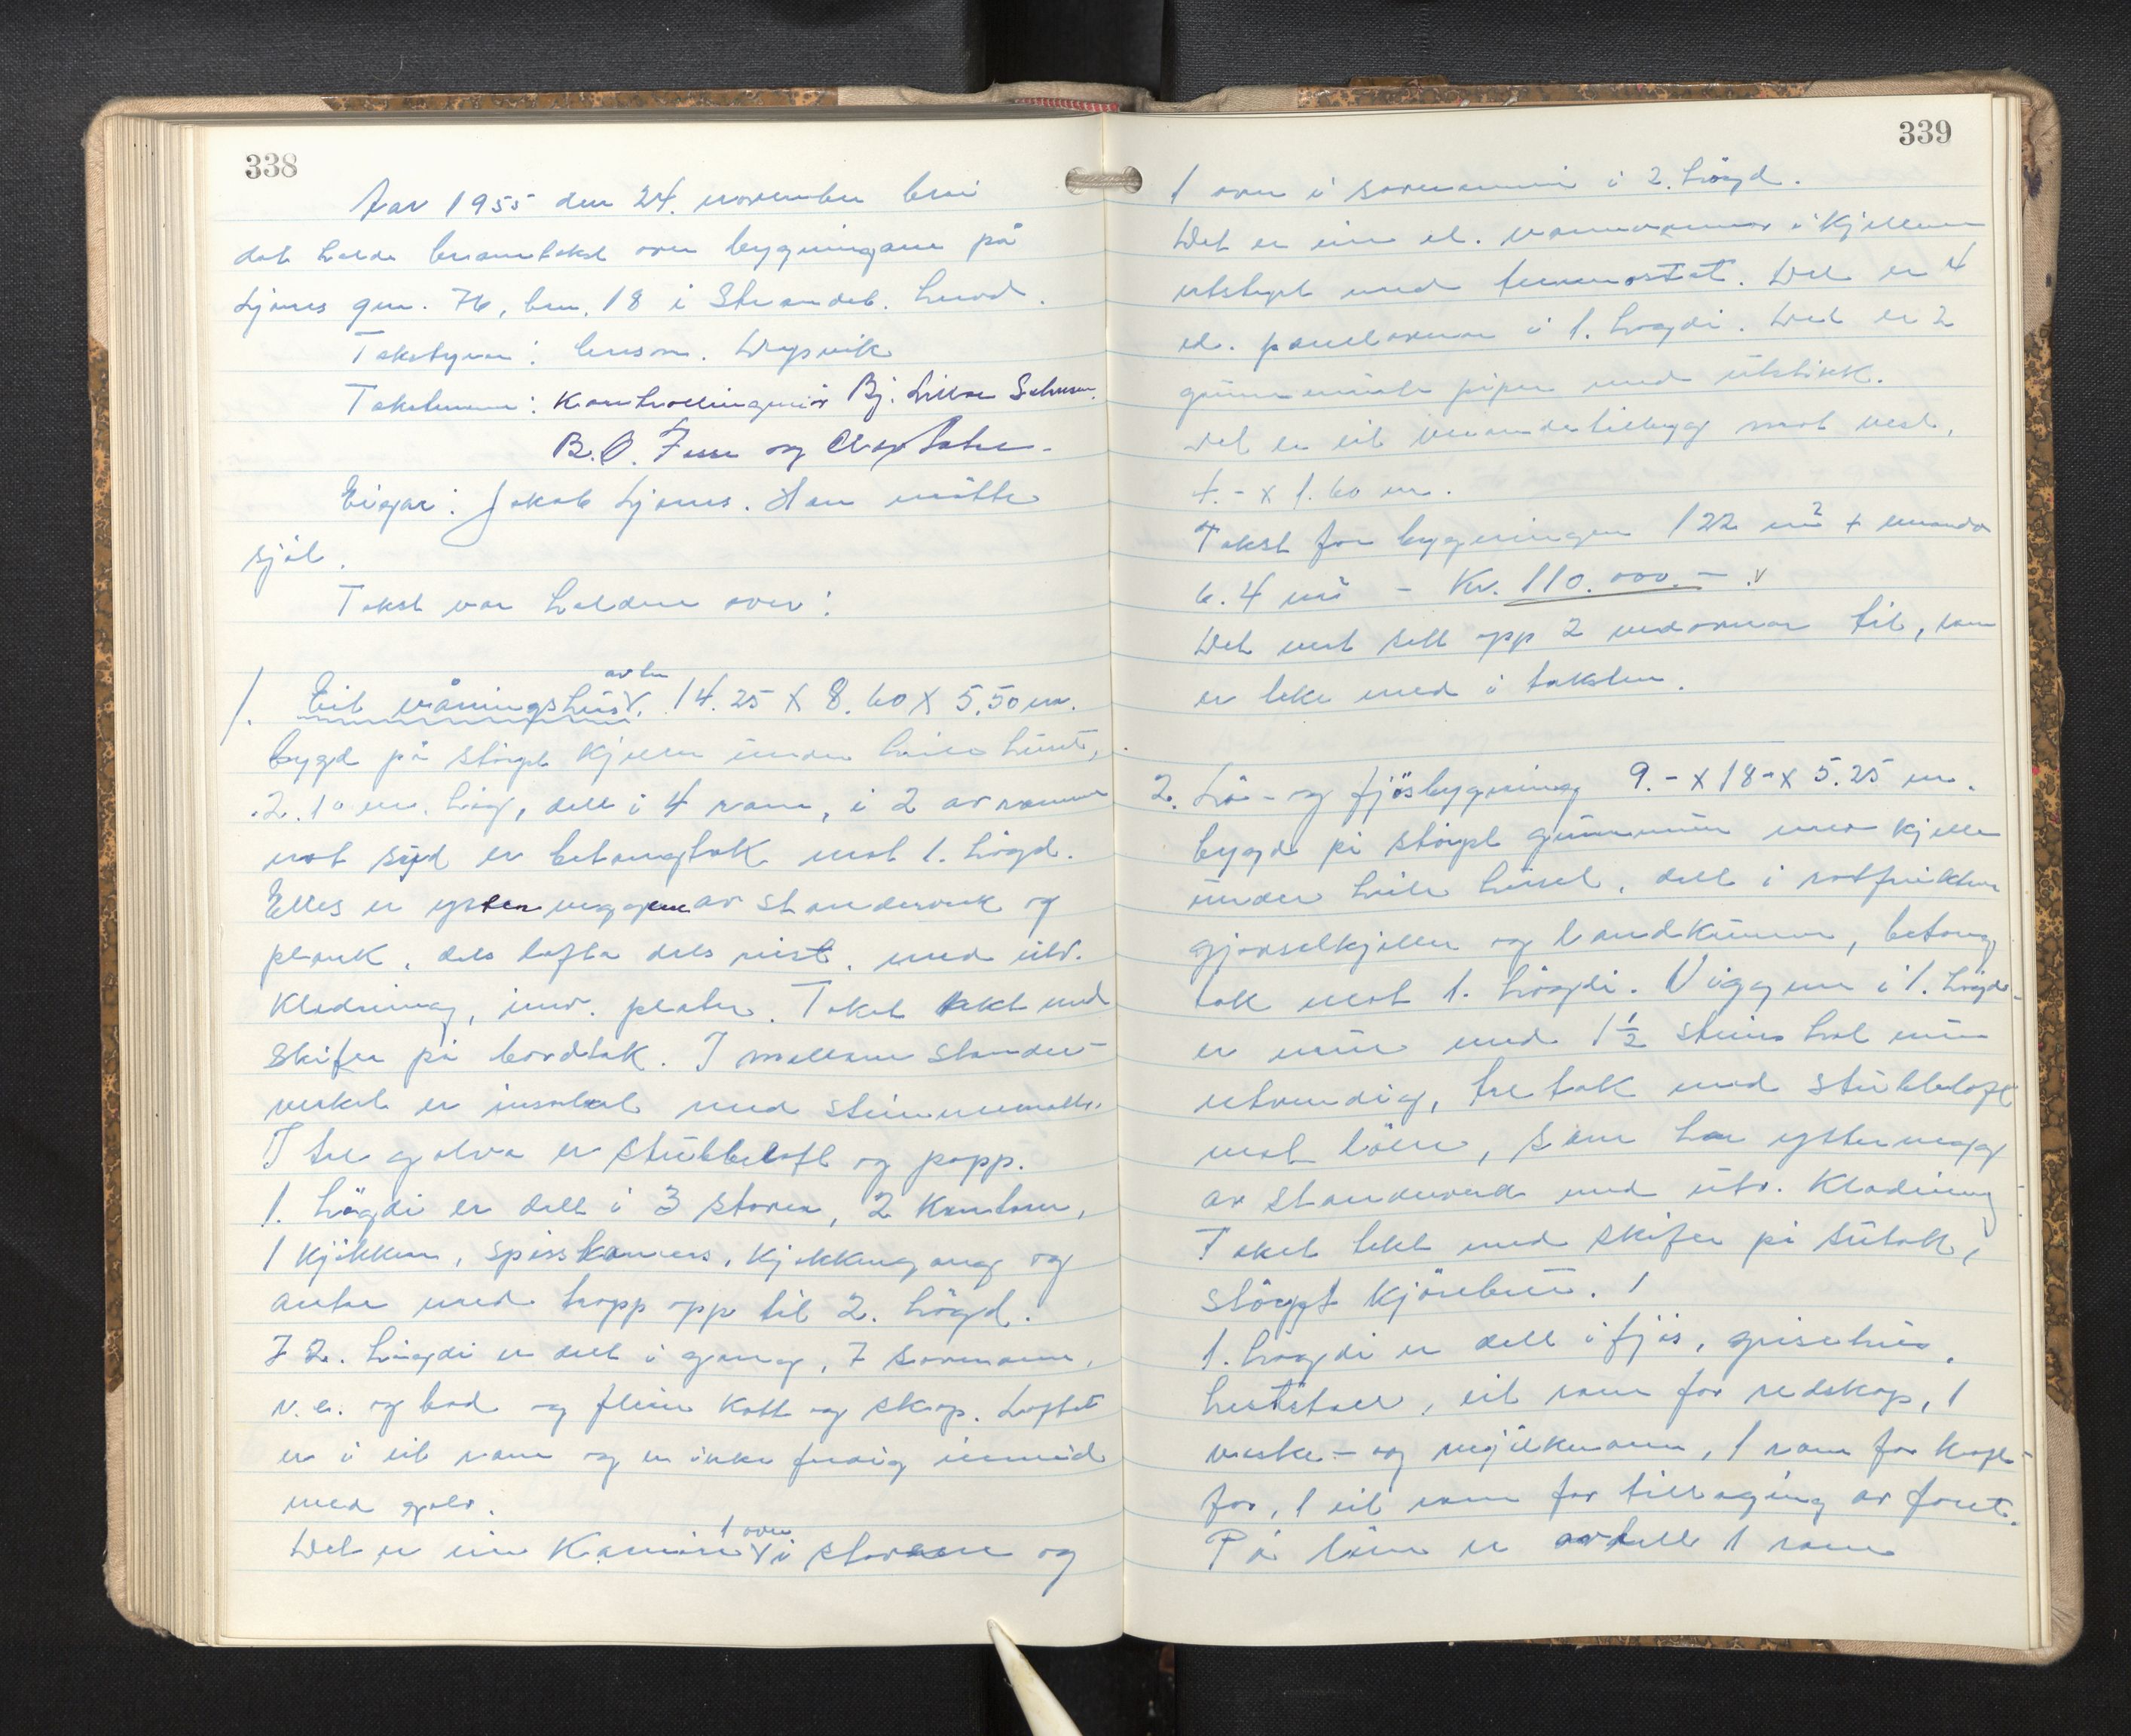 338
Aar 1955 den 24. november blei
det halde branntakst over bygningane på
Ljones gnr. 76, bnr. 18 i Strandeb. herad.
Takstyrar: lensm. Dysvik
Takstmenn: Kontrollingeniör Bj.
B. O. Fosse og
Eigar: Jakob Ljones. Han mötte
sjöl.
Takst var halden over:
1. Eit våningshus av tre 14.25 X 8.60 X 5.50 m.
bygd på stöypt kjellar under heile huset,
2.10 m. hög, delt i 4 rom, i 2 av romma
mot syd er betongtak mot 1. högd.
Elles er yster veggene av standerverk og
plank, dels lafta dels reist, med utv.
kledning, innv. plater. Taket tekt med
skifer på bordtak. I mellom stander-
verket er isolert med steinullmatter.
I tre golva er stubbeloft og papp.
1. högdi er delt i 3 stover, 2 kontor,
1 kjökken, spisskammers, kjökkengang og
antre med tropp opp til 2. högd.
I 2. högdi er delt i gang, 7 soveromm,
v.c. og bad og fleire kott og skap. Loftet
er i eit rom og er ikkje ferdig innreid
med golv.
Det er ein Kamin 1 ovn i stovene og
339
1 ovn i soveromm i 2. högd.
Det er ein el. varmeovnar i kjellaren
utstyrt med termostat. Det er 4
el. panelovnar i 1. högdi. Det er 2
gjennommurte piper med utstikk.
Det er eit verandatilbygg mot vest,
4.- x 1.60 m.
Takst for bygningen 122 m2 + veranda
6.4 m2 - Kr. 110.000.-
Det vert sett opp 2 vedovnar til, som
er teke med i taksten.
2. Lö- og fjösbygning 9.- x 18.- x 5.25 m.
bygd på stöypt grunnmur med kjellar
under heile huset, delt i rotfrukt
gjödselkjellar og landkummar, betong
tak mot 1. högdi. Veggene i 1. högda
er mur med 1½ steins hol mur
utvendig, tre tak med stubbeloft
mot löen, som har yster vegg
av standerverk med utv. kledning
Taket tekt med skifer på sutak,
stöypt kjörebru. 1
1. högdi er delt i fjös, grisehus,
heststall, eit rom for redskap, 1
vaske- og mjölkerom, 1 rom for kraft-
for, 1 eit rom for tillaging av foret.
På löen er avdelt 1 rom